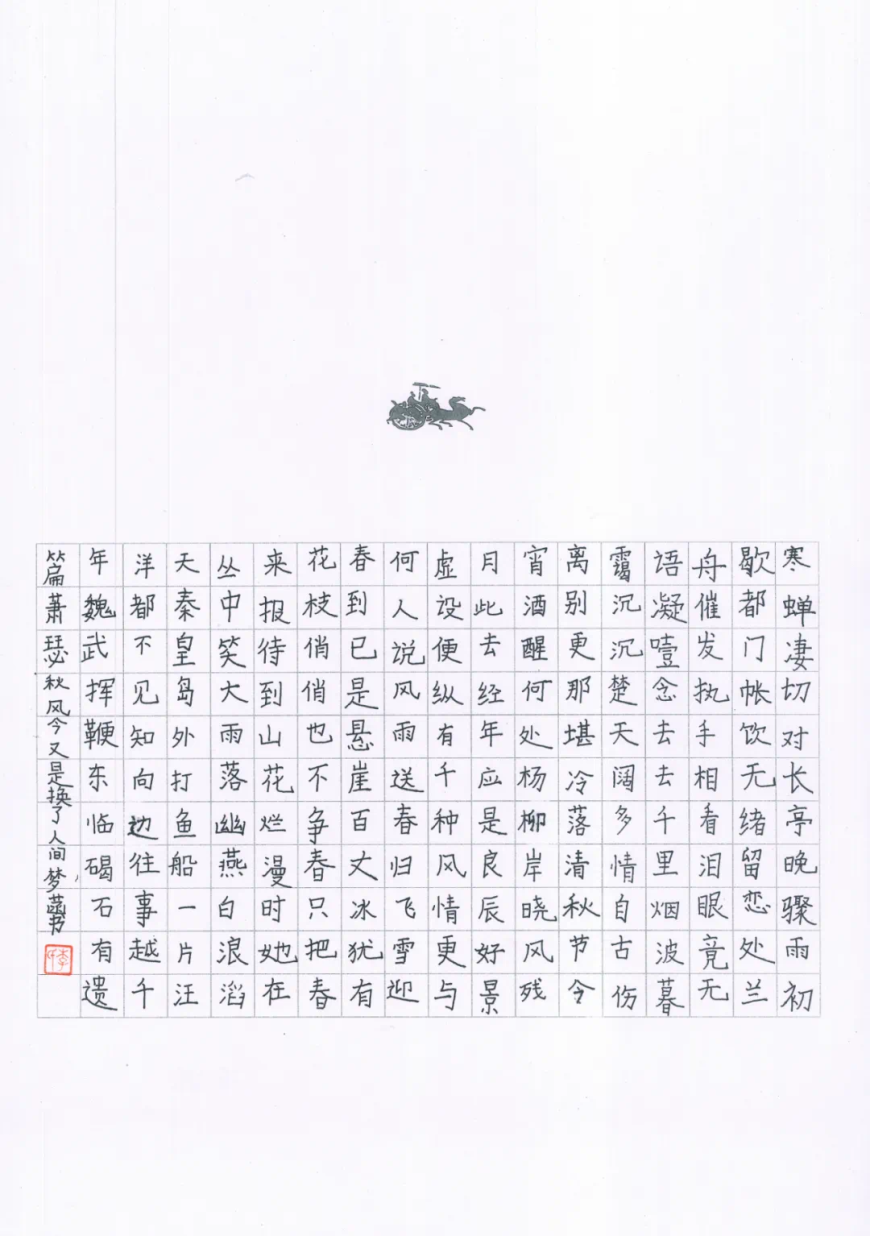 寒蝉凄切对长亭晚骤雨初
歇都门帐饮无绪留恋处兰
舟催发执手相看泪眼竟无
语凝噎念去去千里烟波暮
霭沉沉楚天阔多情自古伤
离别更那堪冷落清秋节今
宵酒醒何处杨柳岸晓风残
月此去经年应是良辰好景
虚设便纵有千种风情更与
何人说风雨送春归飞雪迎
春到已是悬崖百丈冰犹有
花枝俏俏也不争春只把春
来报待到山花烂漫时她在
丛中笑大雨落幽燕白浪滔
天秦皇岛外打鱼船一片汪
洋都不见知向边往事越千
年魏武挥鞭东临碣石有遗
篇萧瑟秋风今又是换了人间梦